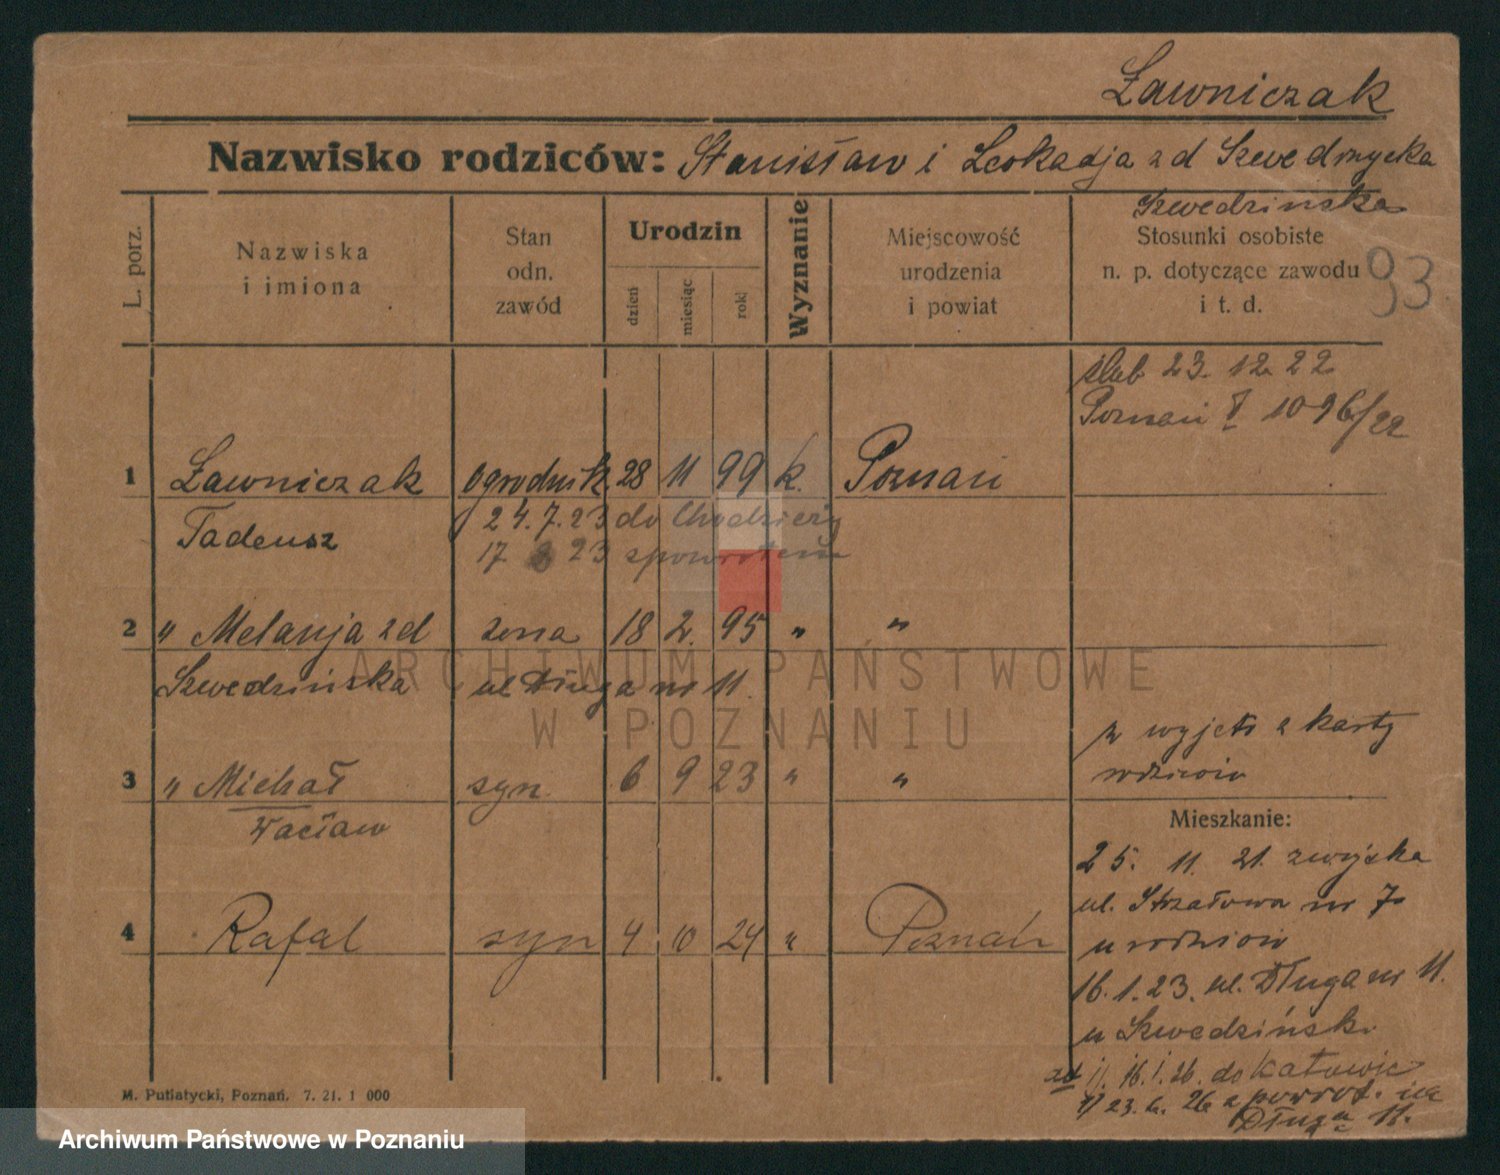 Ławniczak
Nazwisko rodziców: Stanisław i Leokadja zd Szwedrzycka
Szwedzińska
L. porz.
Nazwiska
i imiona
Stan
odn.
zawód
Urodzin
dzień
miesiąc
rok
Wyznanie
Miejscowość
urodzenia
i powiat
Stosunki osobiste
n. p. dotyczące zawodu
i t. d.
93
ślub 23. 12. 22
Poznań I 1096/22
1 Ławniczak ogrodnik 28 11 99 k. Poznań
Tadeusz 24.7.23 do Chodzieży
17 8 23 zpowrotem
2 " Melanja zd żona 18 2. 95 " "
Szwedzińska ul Długa nr 11.
wyjęto z karty
rodziców
3 " Michał syn 6 9 23 " "
Wacław
Mieszkanie:
25. 11. 21. z wojska
ul. Strzałowa nr 7
u rodziców
4 Rafał syn 4 10 24 " Poznań
16.1.23. ul. Długa nr 11.
u Szwedzińsk.
16.1.26. do Katowic
23. 6. 26 z powrot. na
Długa 11.
M. Putiatycki, Poznań. 7. 21. 1 000
ARCHIWUM PAŃSTWOWE
W POZNANIU
Archiwum Państwowe w Poznaniu